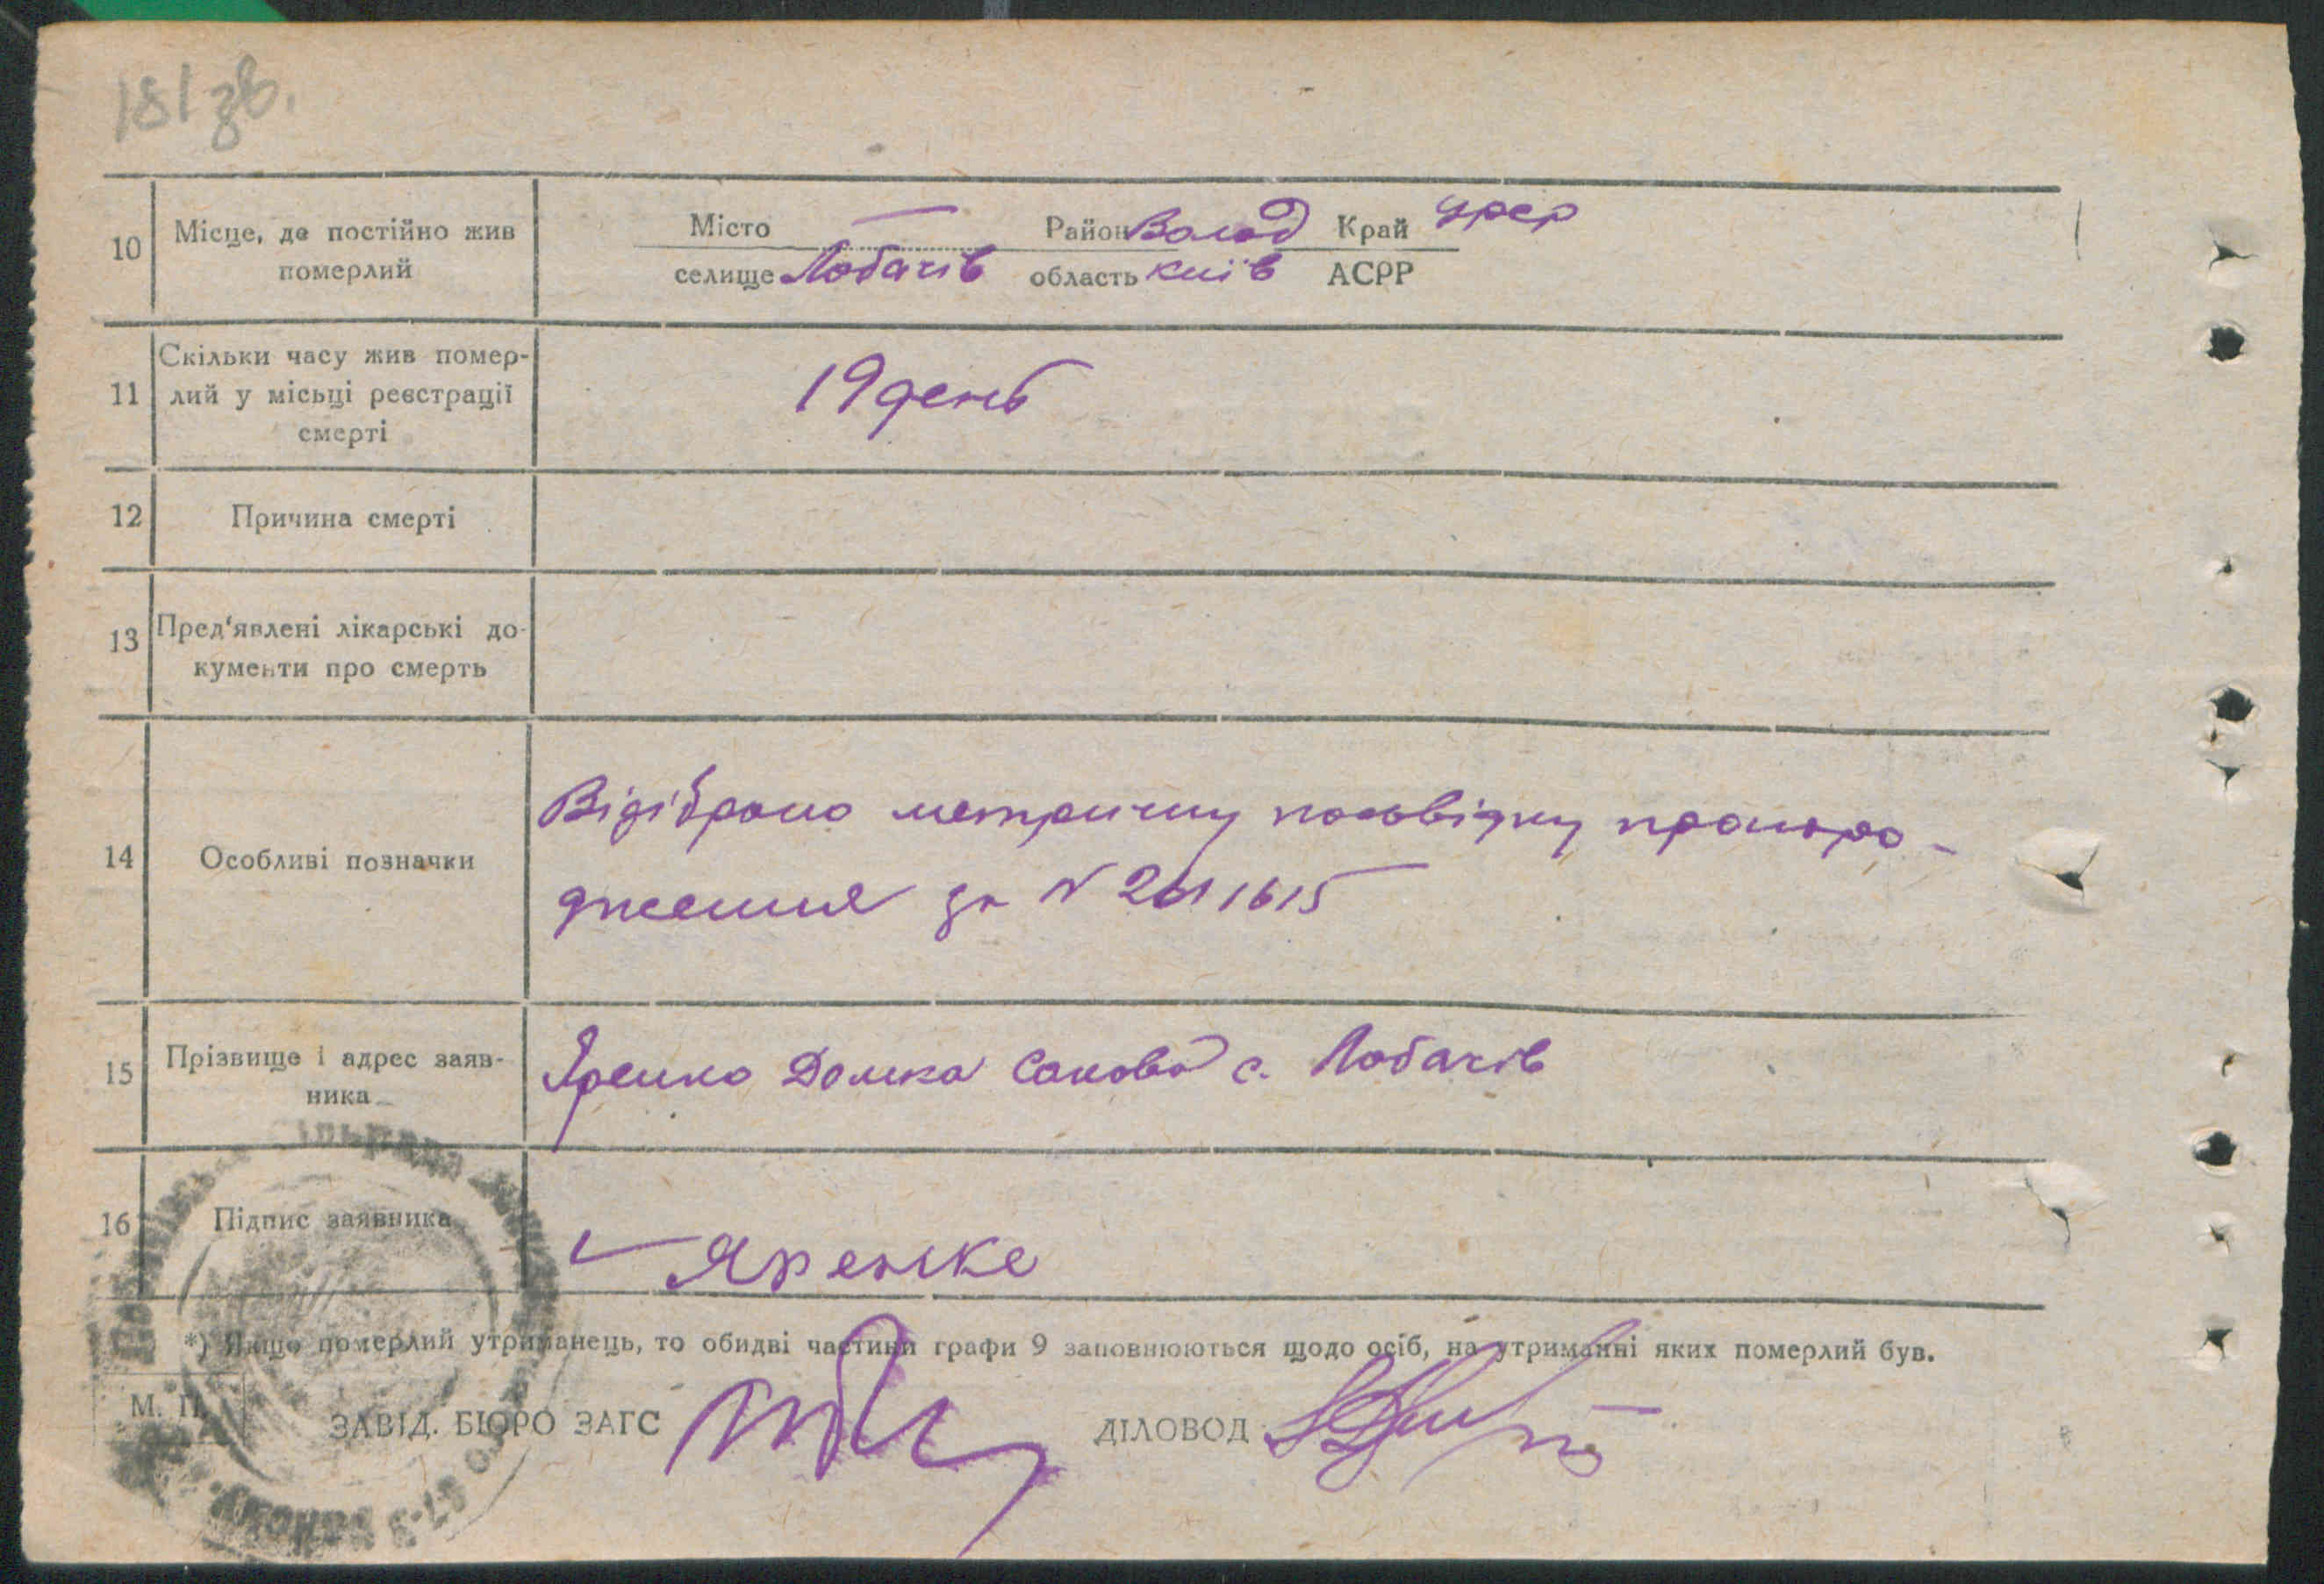 181 зв.
10 Місце, де постійно жив померлий
Місто — Район Волод Край УРСР
селище Лобачів область Київ АСРР
11 Скільки часу жив помер-
лий у місьці реєстрації
смерті
19 день
12 Причина смерті
13 Пред'явлені лікарські до-
кументи про смерть
14 Особливі позначки
Відібрано метричну посвідку
дження за N 2011615
15 Прізвище і адрес заяв-
ника
Яренко Домка с. Лобачів
16 Підпис заявника
Яренке
*) Якщо померлий утриманець, то обидві частини графи 9 заповнюються щодо осіб, на утриманні яких померлий був.
М. П.
ЗАВІД. БЮРО ЗАГС ДІЛОВОД